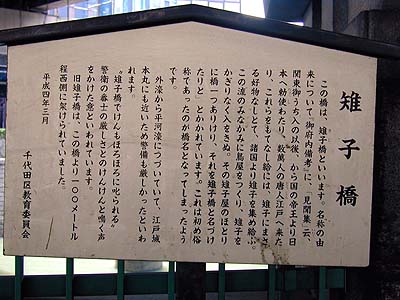 雉子橋
この橋は、雉子橋といいます。名称の由
来について「御府内備考」に、「見聞集」云、
関東御うち入り以後、から国の帝王より日
本へ勅使わたり、数万人の唐人江戸へ来た
り、これらをもてなし給ふには、雉子にまさ
る好物なしとて、諸国より雉子を集め給ふ
この流のみなかみに鳥屋をつくり、雉子を
かぎりなく入をきぬ。その雉子屋のほとり
に橋一つありけり、それを雉子橋と名づけ
たりと　とかかれています。これは初め俗
称であったのが橋名となってしまったよう
です。
外濠から平河濠につづいていて、江戸城
本丸にも近いため警備も厳しかったといわ
れます。
〝雉子橋でけんもほろほろに叱られる〟
警衛の番士の厳しさとのけんけんと鳴く声
をかけた意といわれています。
旧雉子橋は、この橋より一〇〇メートル
程西側に架けられていました。
平成四年三月
千代田区教育委員会